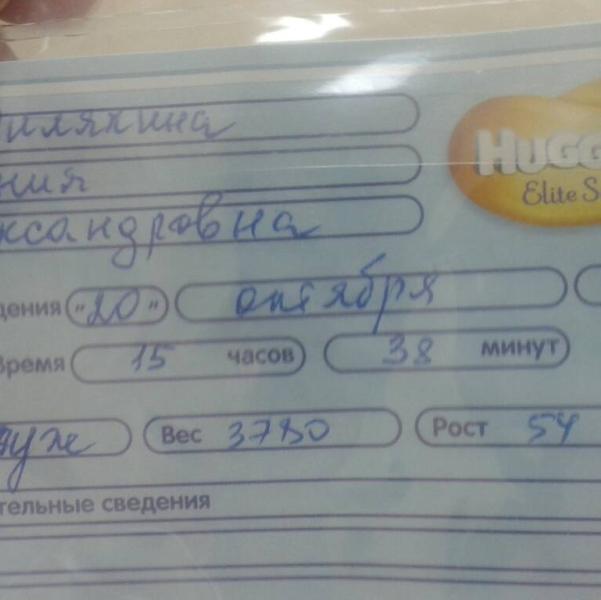 иляхина
HUGG
ния
Elite S
ксандровна
дения «20» октября
Время 15 часов 38 минут
муж Вес 3780 Рост 54
тельные сведения